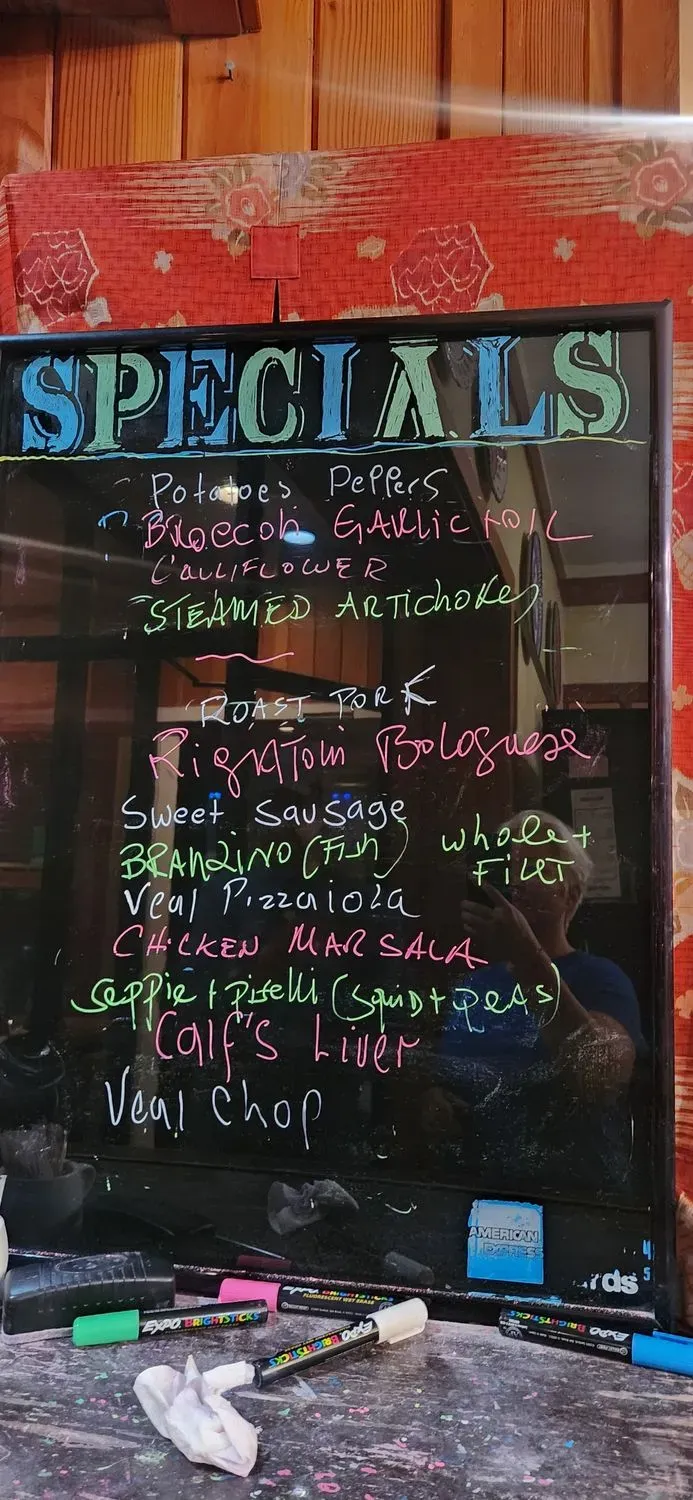 SPECIALS
Potatoes Peppers
Broccoli GARLIC + OIL
CAULIFLOWER
STEAMED ARTIchokes
ROAST PORK
RigATOni Bolognese
Sweet Sausage
BRANZINO (Fish) whole +
FILET
Veal Pizzaiola
CHICKEN MARSALA
Seppie + piselli (squid + peas)
Calf's Liver
Veal Chop
AMERICAN
EXPRESS
rds
EXPO BRIGHTSTICKS
BRIGHTSTICKS
FLUORESCENT WET ERASE
EXPO BRIGHTSTICKS
EXPO BRIGHTSTICKS